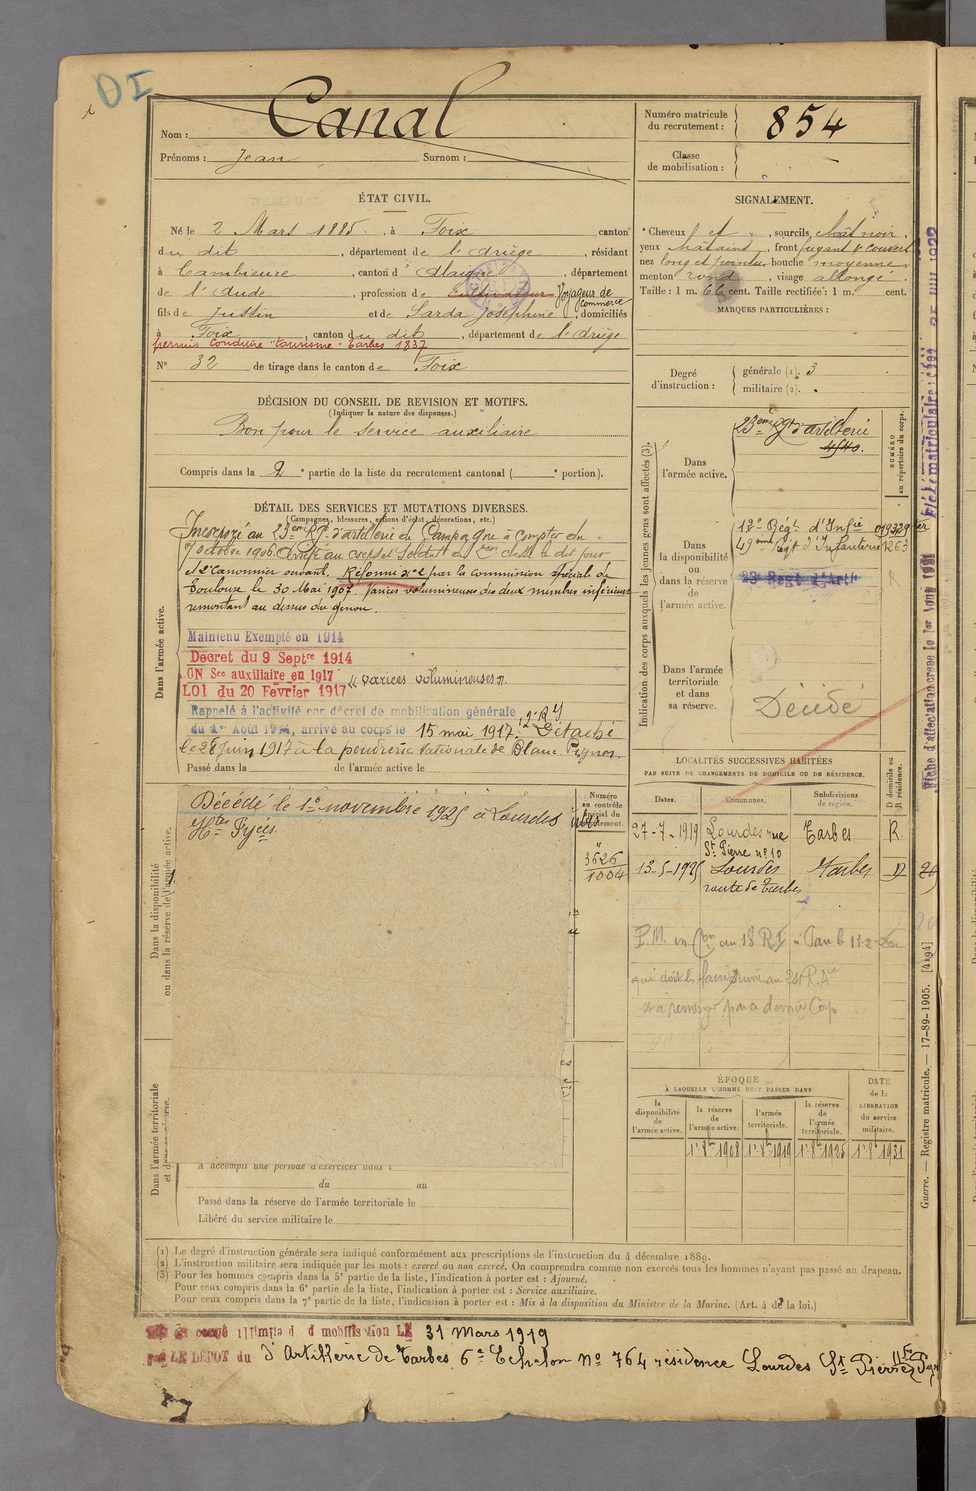 DI
Nom : Canal
Prénoms : Jean Surnom :
Numéro matricule du recrutement : 854
Classe de mobilisation :
ÉTAT CIVIL.
Né le 2 Mars 1885, à Foix canton
du dit, département de l'Ariège, résidant
à Cambieure, canton d'Alaigne, département
de l'Aude, profession de Cultivateur Voyageur de Commerce
fils de Justin et de Sarda Joséphine, domiciliés
à Foix, canton du dit, département de l'Ariège
permis conduire "tourisme" Tarbes 1837
N° 32 de tirage dans le canton de Foix
SIGNALEMENT.
Cheveux et, sourcils chât noir
yeux châtains, front fuyant & couvert
nez long et pointu, bouche moyenne
menton rond, visage allongé
Taille : 1 m. 66 cent. Taille rectifiée : 1 m. cent.
MARQUES PARTICULIÈRES :
Degré d'instruction : générale (1). 3
militaire (2).
DÉCISION DU CONSEIL DE REVISION ET MOTIFS.
(Indiquer la nature des dispenses.)
Bon pour le service auxiliaire
Compris dans la 2e partie de la liste du recrutement cantonal ( e portion).
DÉTAIL DES SERVICES ET MUTATIONS DIVERSES.
(Campagnes, blessures, actions d'éclat, décorations, etc.)
Incorporé au 23ème Rgt d'artillerie de Campagne à compter du
7 octobre 1906. Arrivé au corps et Soldat de 2ème classe le dit jour
et 2e Canonnier servant. Réformé n°2 par la commission spécial de
Toulouse le 30 Mai 1907. Varices volumineuses des deux membres inférieurs
remontant au dessus du genou.
Dans l'armée active.
Maintenu Exempté en 1914
Decret du 9 Septre 1914
ON Sce auxiliaire en 1917
LOI du 20 Février 1917 "varices volumineuses".
Rappelé à l'activité par décret de mobilisation générale
du 1er Août 1914, arrivé au corps le 15 mai 1917. Détaché
le 28 juin 1917 à la poudrerie Nationale de Blanc Pignon.
Passé dans la de l'armée active le
Indication des corps auxquels les jeunes gens sont affectés (3).
Dans l'armée active.
23ème Rgt d'artillerie
NUMÉRO au répertoire du corps.
Dans la disponibilité ou dans la réserve de l'armée active.
12e Régt d'Infie
49ème Régt d'Infanterie 1263
23e Regt d'Artie
Dans l'armée territoriale et dans sa réserve.
Décédé
Dans la disponibilité ou dans la réserve de l'armée active.
Décédé le 1er novembre 1925 à Lourdes
Htes Pyées.
Numéro au contrôle spécial du recrutement.
3626
1004
LOCALITÉS SUCCESSIVES HABITÉES
PAR SUITE DE CHANGEMENTS DE DOMICILE OU DE RÉSIDENCE.
Dates. Communes. Subdivisions de région. D domicile ou R résidence.
27-7-1919 Lourdes rue St Pierre n° 10 Tarbes R.
13-5-1925 Lourdes route de Tarbes Tarbes D
Dans l'armée territoriale et dans sa réserve.
A accompli une période d'exercices dans l
du au
Passé dans la réserve de l'armée territoriale le
Libéré du service militaire le
ÉPOQUE
À LAQUELLE L'HOMME DOIT PASSER DANS
la disponibilité de l'armée active. la réserve de l'armée active. l'armée territoriale. la réserve de l'armée territoriale. DATE de la LIBÉRATION du service militaire.
1er 8bre 1908 1er 8bre 1919 1er 8bre 1926 1er 8bre 1931
(1) Le degré d'instruction générale sera indiqué conformément aux prescriptions de l'instruction du 4 décembre 1889.
(2) L'instruction militaire sera indiquée par les mots : exercé ou non exercé. On comprendra comme non exercés tous les hommes n'ayant pas passé au drapeau.
(3) Pour les hommes compris dans la 5e partie de la liste, l'indication à porter est : Ajourné.
Pour ceux compris dans la 6e partie de la liste, l'indication à porter est : Service auxiliaire.
Pour ceux compris dans la 7e partie de la liste, l'indication à porter est : Mis à la disposition du Ministre de la Marine. (Art. 4 de la loi.)
LE 31 Mars 1919
LE DEPOT du d'Artillerie de Tarbes 6e Echelon N° 764 résidence Lourdes St Pierre
Guerre. — Registre matricule. — 17-89-1905. [4194]